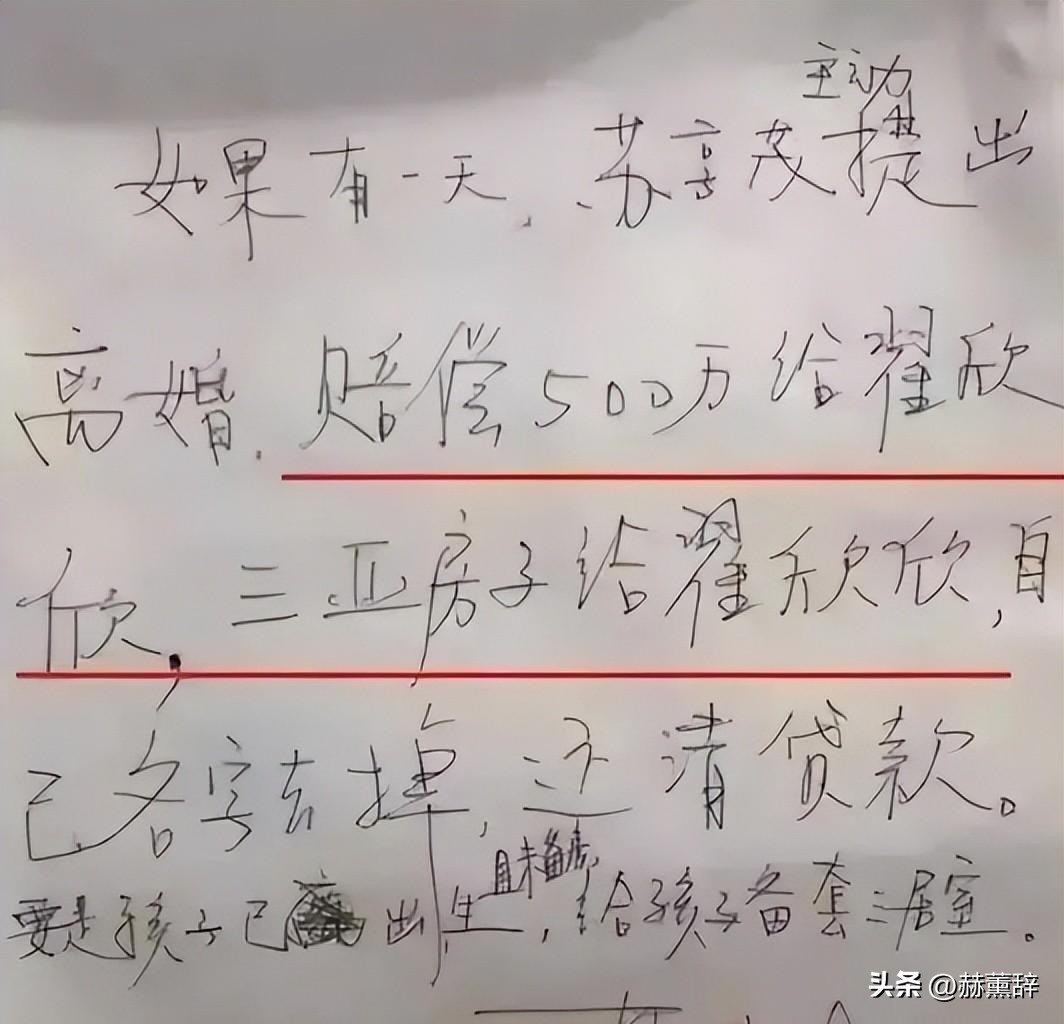 主动
如果有一天,苏享茂提出
离婚.赔偿500万给翟欣
欣,三亚房子给翟欣欣,自
己名字去掉,还清贷款。
且未备房
要是孩子已出生,给孩子备套三居室。
头条 @赫薰辞